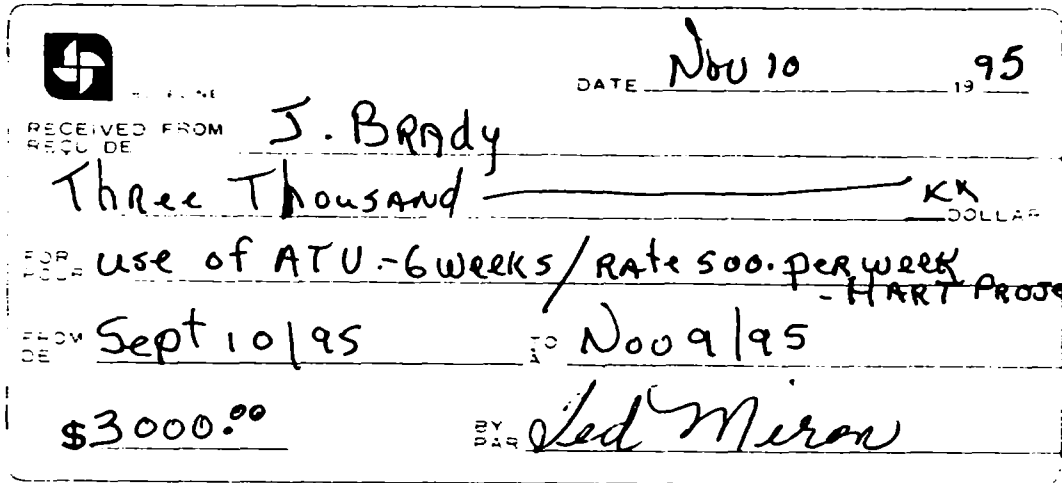 DATE Nov 10 19 95
RECEIVED FROM J. BRAdy
DE
Three Thousand xx
DOLLAR
FOR use of ATV - 6 weeks / RAte 500. per week
- HART PROJE
FROM Sept 10/95 TO Nov 9/95
DE A
$3000.00 BY Ted Miron
PAR